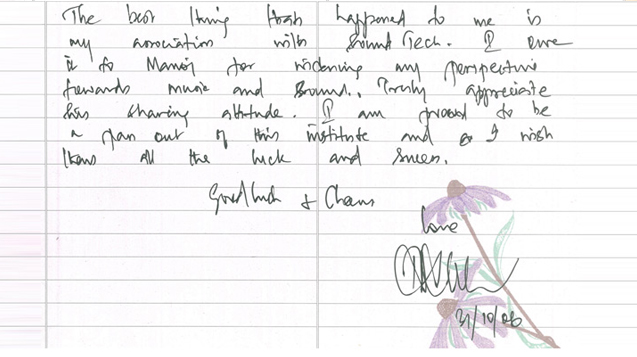 The best thing that happened to me is
my association with Sound Tech. I owe
it to Manoj for widening my perspective
towards music and Sound. Truly appreciate
his sharing attitude. I am proud to be
a pass out of this institute and I wish
them all the luck and success.
Good luck + Cheers
love
31/10/06